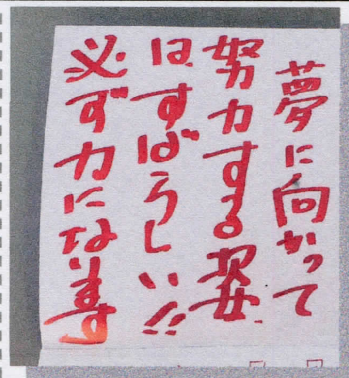 夢に向かって
努力する姿
は、すばらしい!!
必ず力になります